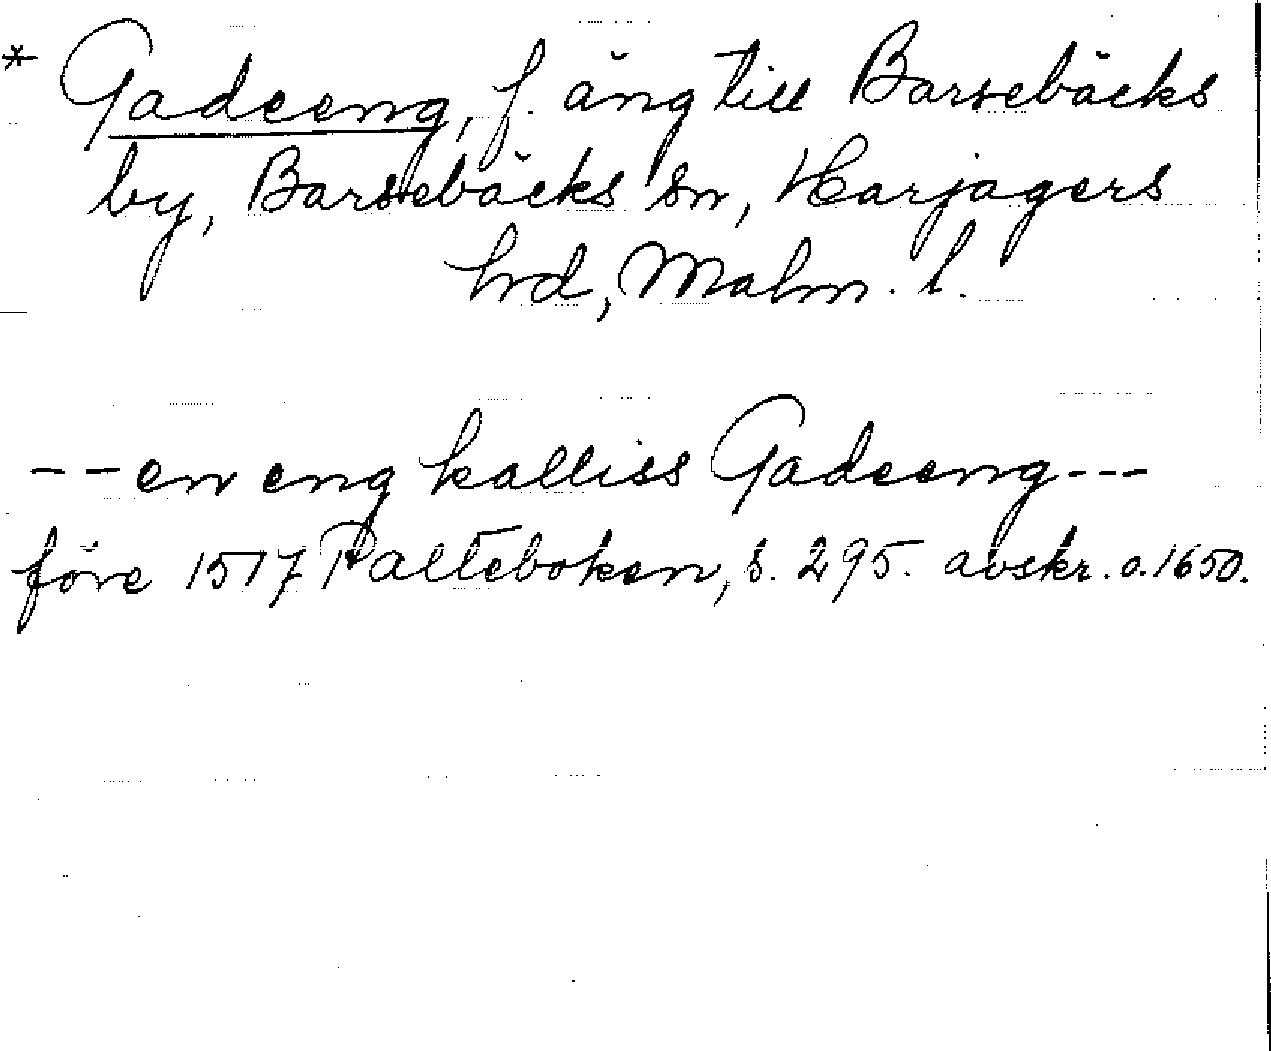 * Gadeeng, f. äng till Barsebäcks
by, Barsebäcks sn, Harjagers
hrd, Malm. l.
-- en eng kalliss Gadeeng ---
före 1517 Palteboken, s. 295. avskr. o. 1650.